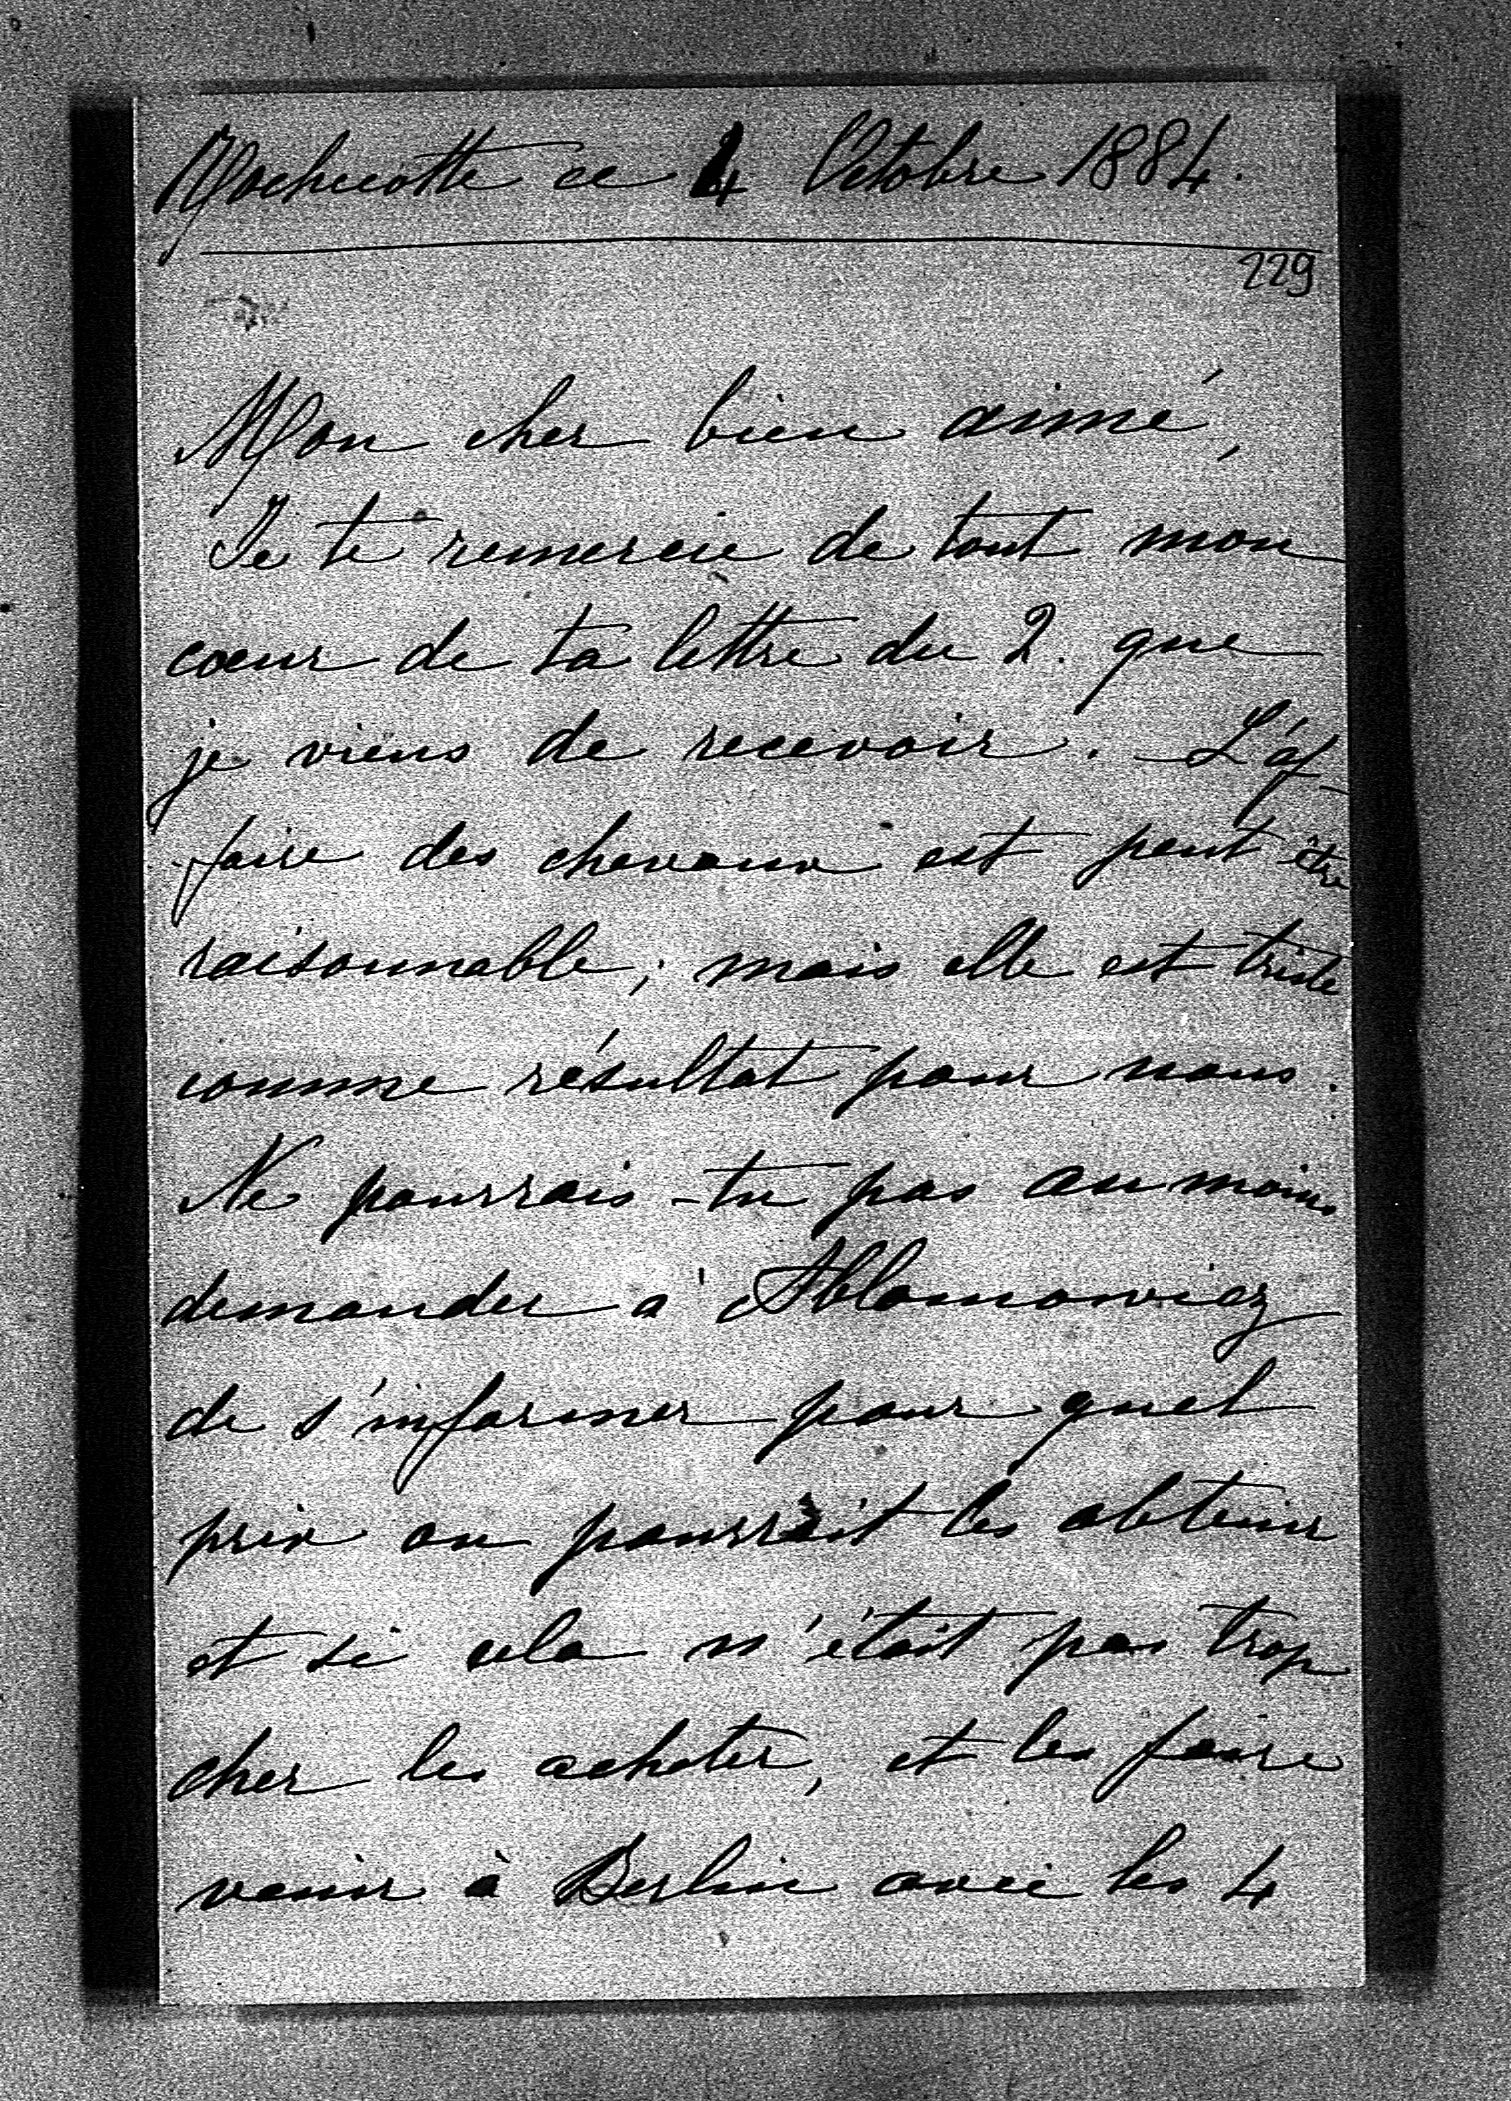 Rochecotte ce 4 Octobre 1884.
229
Mon cher bien aimé,
Je te remercie de tout mon
cœur de ta lettre du 2. que
je viens de recevoir. - L'af-
faire des chevaux est peut être
raisonnable; mais elle est triste
comme résultat pour nous.
Ne pourrais-tu pas au moins
demander à Ablamowicz
de s'informer pour quel
prix on pourrait les obtenir
et si cela n'était pas trop
cher les acheter, et les faire
venir à Berlin avec les 4